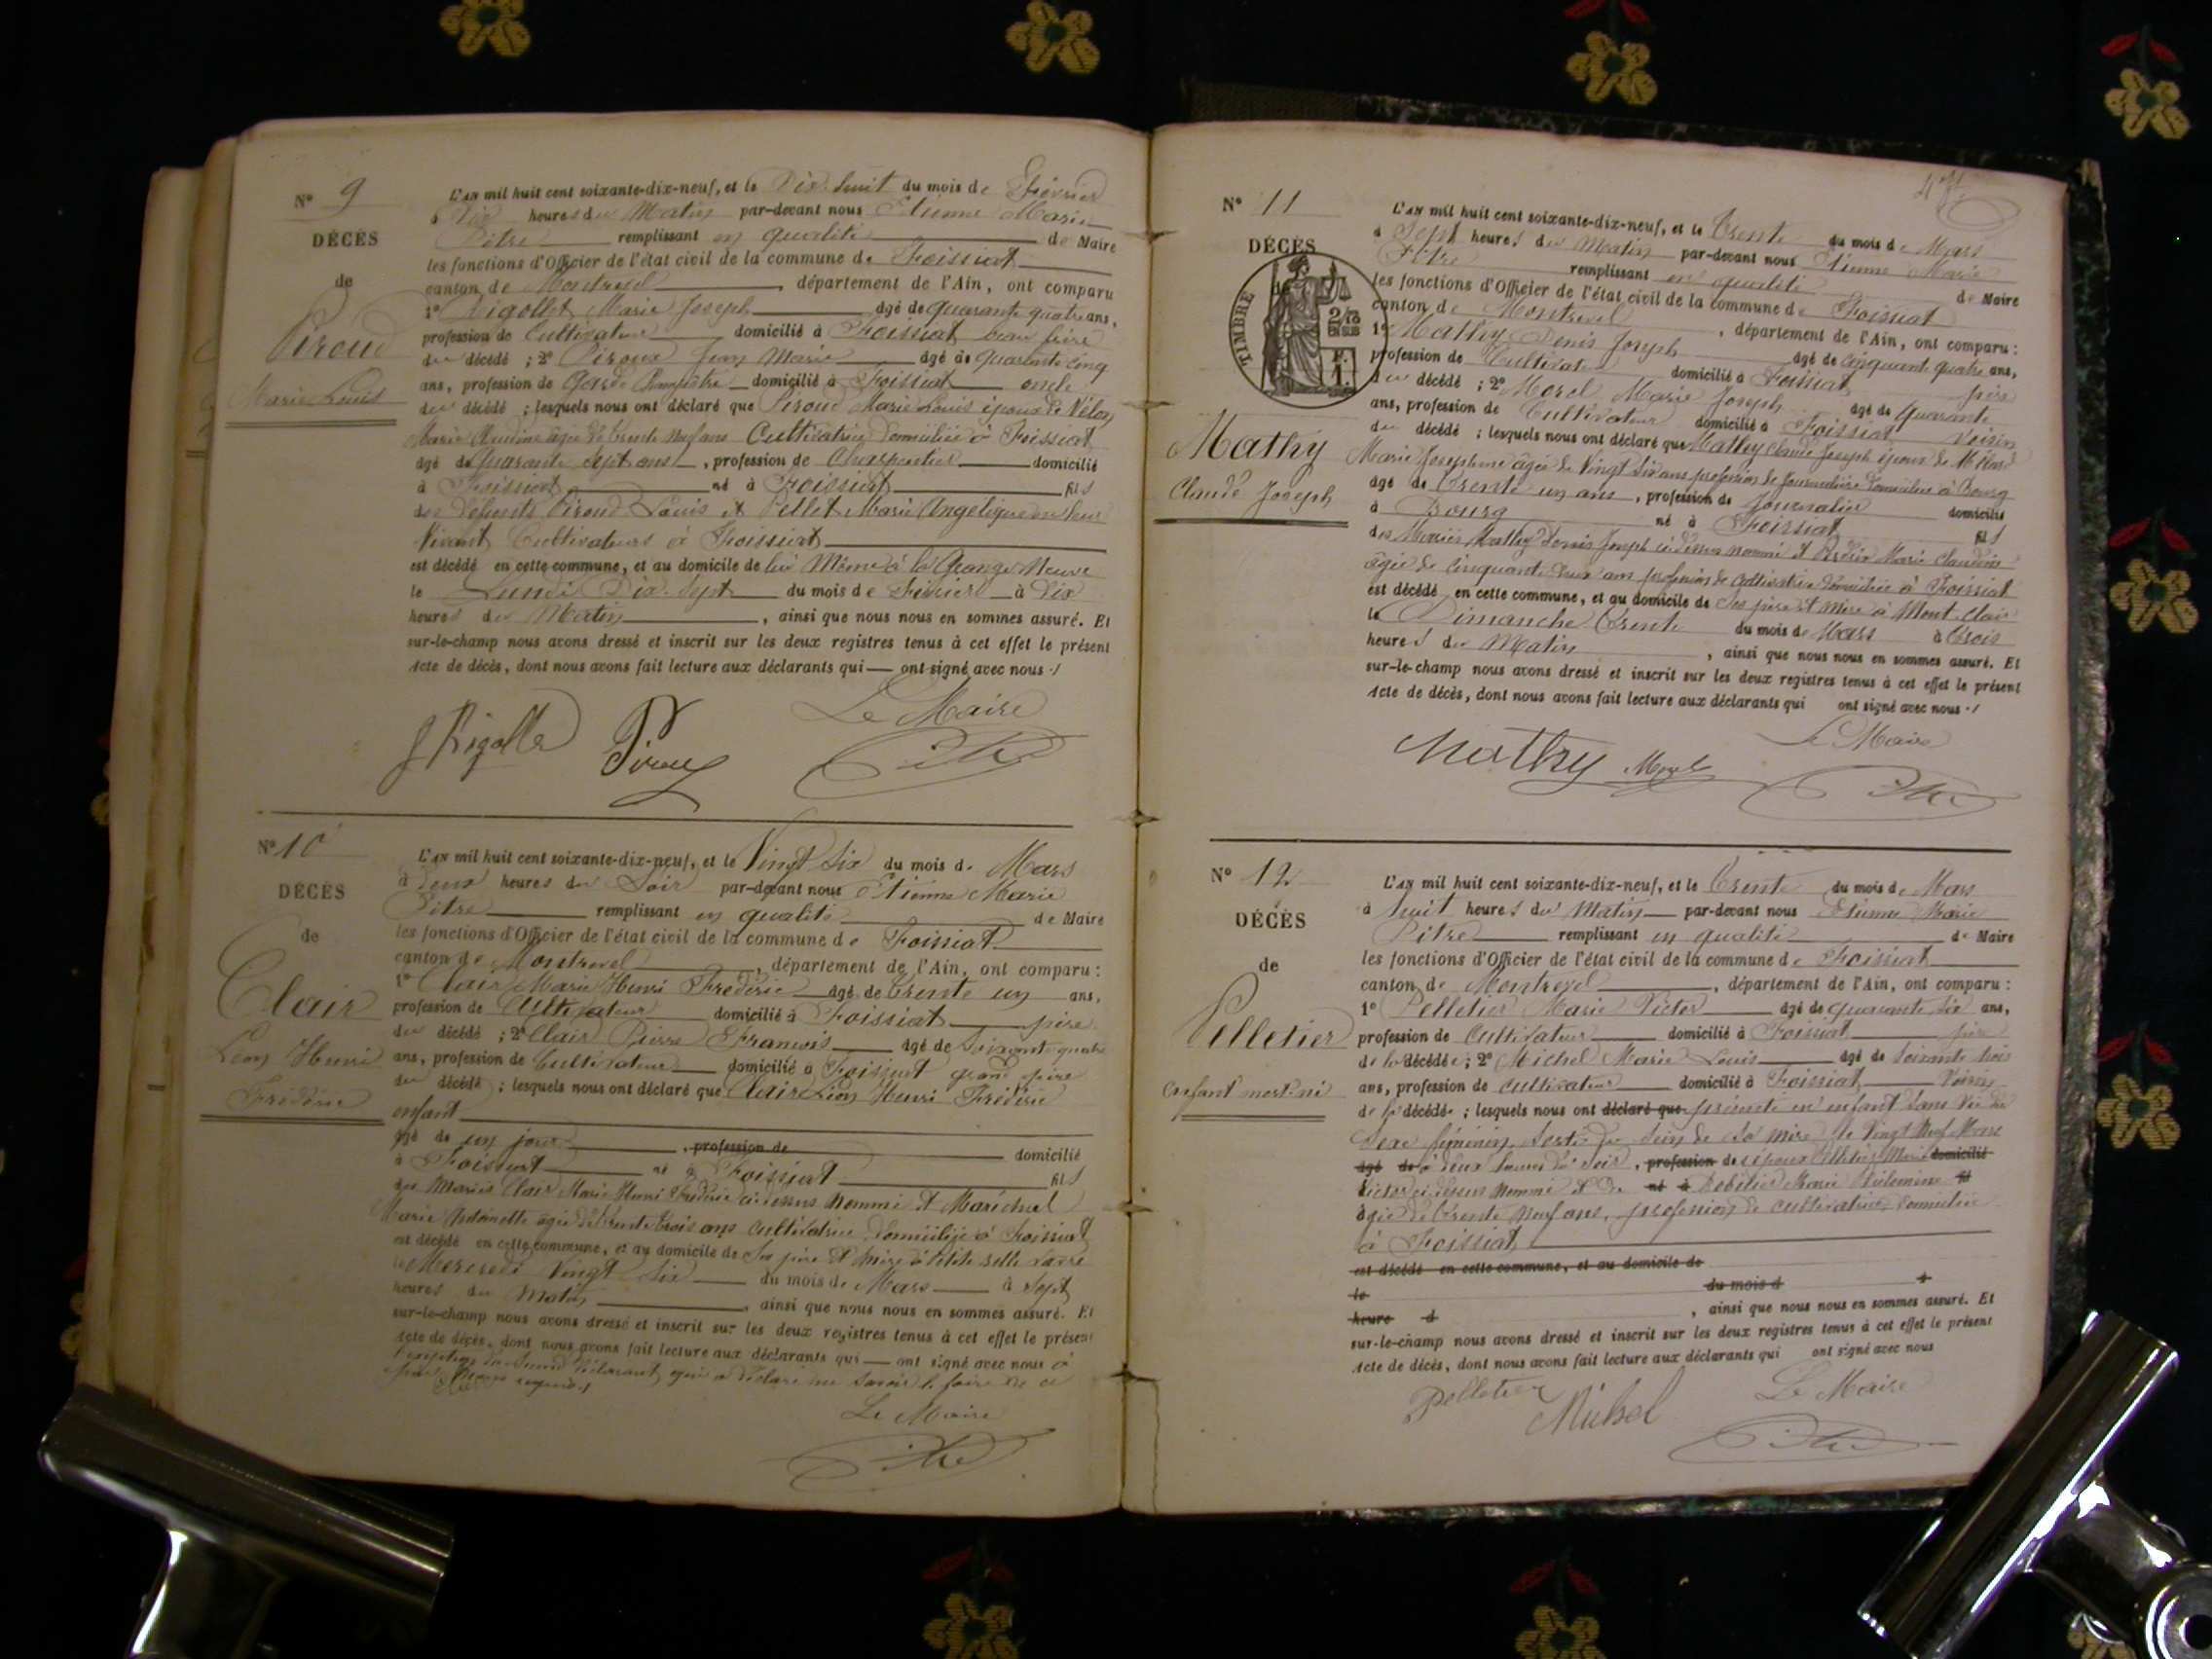 N° 9
DÉCÈS
de
Piroud
Marie Louis
L'AN mil huit cent soixante-dix-neuf, et le Dix huit du mois de Février
à Dix heures du Matin par-devant nous Etienne Marie
Pitre remplissant en qualité de Maire
les fonctions d'Officier de l'état civil de la commune de Foissiat
canton de Montrevel, département de l'Ain, ont comparu
1° Rigollet Marie Joseph âgé de quarante quatre ans,
profession de Cultivateur domicilié à Foissiat beau frère
du décédé ; 2° Piroux Jean Marie âgé de quarante cinq
ans, profession de Garde Champêtre domicilié à Foissiat oncle
du décédé ; lesquels nous ont déclaré que Piroud Marie Louis époux de
Marie Claudine âgée de trente neuf ans Cultivatrice domiciliée à Foissiat
âgé de quarante sept ans, profession de Charpentier domicilié
à Foissiat né à Foissiat fils
des défunts Piroud Louis et Pellet Marie Angélique en leur
vivant Cultivateurs à Foissiat
est décédé en cette commune, et au domicile de lui Même à la Grange Neuve
le Lundi Dix Sept du mois de Février à Dix
heures du Matin, ainsi que nous nous en sommes assuré. Et
sur-le-champ nous avons dressé et inscrit sur les deux registres tenus à cet effet le présent
acte de décès, dont nous avons fait lecture aux déclarants qui ont signé avec nous
J Rigollet Piroux Le Maire
Pitre
N° 10
DÉCÈS
de
Clair
Léon Henri
Frédéric
L'AN mil huit cent soixante-dix-neuf, et le Vingt Six du mois de Mars
à deux heures du Soir par-devant nous Etienne Marie
Pitre remplissant en qualité de Maire
les fonctions d'Officier de l'état civil de la commune de Foissiat
canton de Montrevel, département de l'Ain, ont comparu :
1° Clair Marie Henri Frédéric âgé de trente un ans,
profession de Cultivateur domicilié à Foissiat père
du décédé ; 2° Clair Pierre François âgé de Soixante quatre
ans, profession de Cultivateur domicilié à Foissiat grand père
du décédé ; lesquels nous ont déclaré que Clair Léon Henri Frédéric
enfant
âgé de un jour, profession de domicilié
à Foissiat né à Foissiat fils
des Mariés Clair Marie Henri Frédéric ci dessus nommé et Maréchal
Marie Antoinette âgée de trente trois ans cultivatrice domiciliée à Foissiat
est décédé en cette commune, et au domicile de ses père et mère à
le Mercredi Vingt Six du mois de Mars à Sept
heures du Matin, ainsi que nous nous en sommes assuré. Et
sur-le-champ nous avons dressé et inscrit sur les deux registres tenus à cet effet le présent
acte de décès, dont nous avons fait lecture aux déclarants qui ont signé avec nous à
l'exception du second déclarant qui a déclaré ne savoir le faire de ce
requis
Le Maire
Pitre
47
N° 11
DÉCÈS
TIMBRE
2/10
EN SUS
F.
1.
Mathy
Claude Joseph
L'AN mil huit cent soixante-dix-neuf, et le Trente du mois de Mars
à Sept heures du Matin par-devant nous Etienne Marie
Pitre remplissant en qualité de Maire
les fonctions d'Officier de l'état civil de la commune de Foissiat
canton de Montrevel, département de l'Ain, ont comparu :
1° Mathy Denis Joseph âgé de cinquante quatre ans,
profession de Cultivateur domicilié à Foissiat père
du décédé ; 2° Morel Marie Joseph âgé de Quarante
ans, profession de Cultivateur domicilié à Foissiat voisin
du décédé ; lesquels nous ont déclaré que Mathy Claude Joseph époux de
Marie Josephine âgée de Vingt Six ans profession de Journalière domiciliée à Bourg
âgé de trente un ans, profession de Journalier domicilié
à Bourg né à Foissiat fils
des Mariés Mathy Denis Joseph ci dessus nommé et Marie Claudine
âgée de cinquante deux ans profession de cultivatrice domiciliée à Foissiat
est décédé en cette commune, et au domicile de ses père et mère à Mont Clair
le Dimanche Trente du mois de Mars à trois
heures du Matin, ainsi que nous nous en sommes assuré. Et
sur-le-champ nous avons dressé et inscrit sur les deux registres tenus à cet effet le présent
acte de décès, dont nous avons fait lecture aux déclarants qui ont signé avec nous
Mathy Morel Le Maire
Pitre
N° 12
DÉCÈS
de
Pelletier
enfant mort né
L'AN mil huit cent soixante-dix-neuf, et le Trente du mois de Mars
à huit heures du Matin par-devant nous Etienne Marie
Pitre remplissant en qualité de Maire
les fonctions d'Officier de l'état civil de la commune de Foissiat
canton de Montrevel, département de l'Ain, ont comparu :
1° Pelletier Marie Victor âgé de quarante six ans,
profession de Cultivateur domicilié à Foissiat père
de la décédée ; 2° Michel Marie Louis âgé de Soixante trois
ans, profession de Cultivateur domicilié à Foissiat Voisin
de la décédée ; lesquels nous ont déclaré que présenté un enfant sans vie du
Sexe féminin Sorti du sein de sa mère le Vingt Neuf Mars
âgé de à deux heures du soir, profession de époux Pelletier Marie domicilié
Victor ci dessus nommé et de né à Marie Philomène fil
âgée de trente neuf ans, profession de cultivatrice domiciliée
à Foissiat
est décédé en cette commune, et au domicile de
le du mois d à
heure d, ainsi que nous nous en sommes assuré. Et
sur-le-champ nous avons dressé et inscrit sur les deux registres tenus à cet effet le présent
acte de décès, dont nous avons fait lecture aux déclarants qui ont signé avec nous
Pelletier Michel Le Maire
Pitre